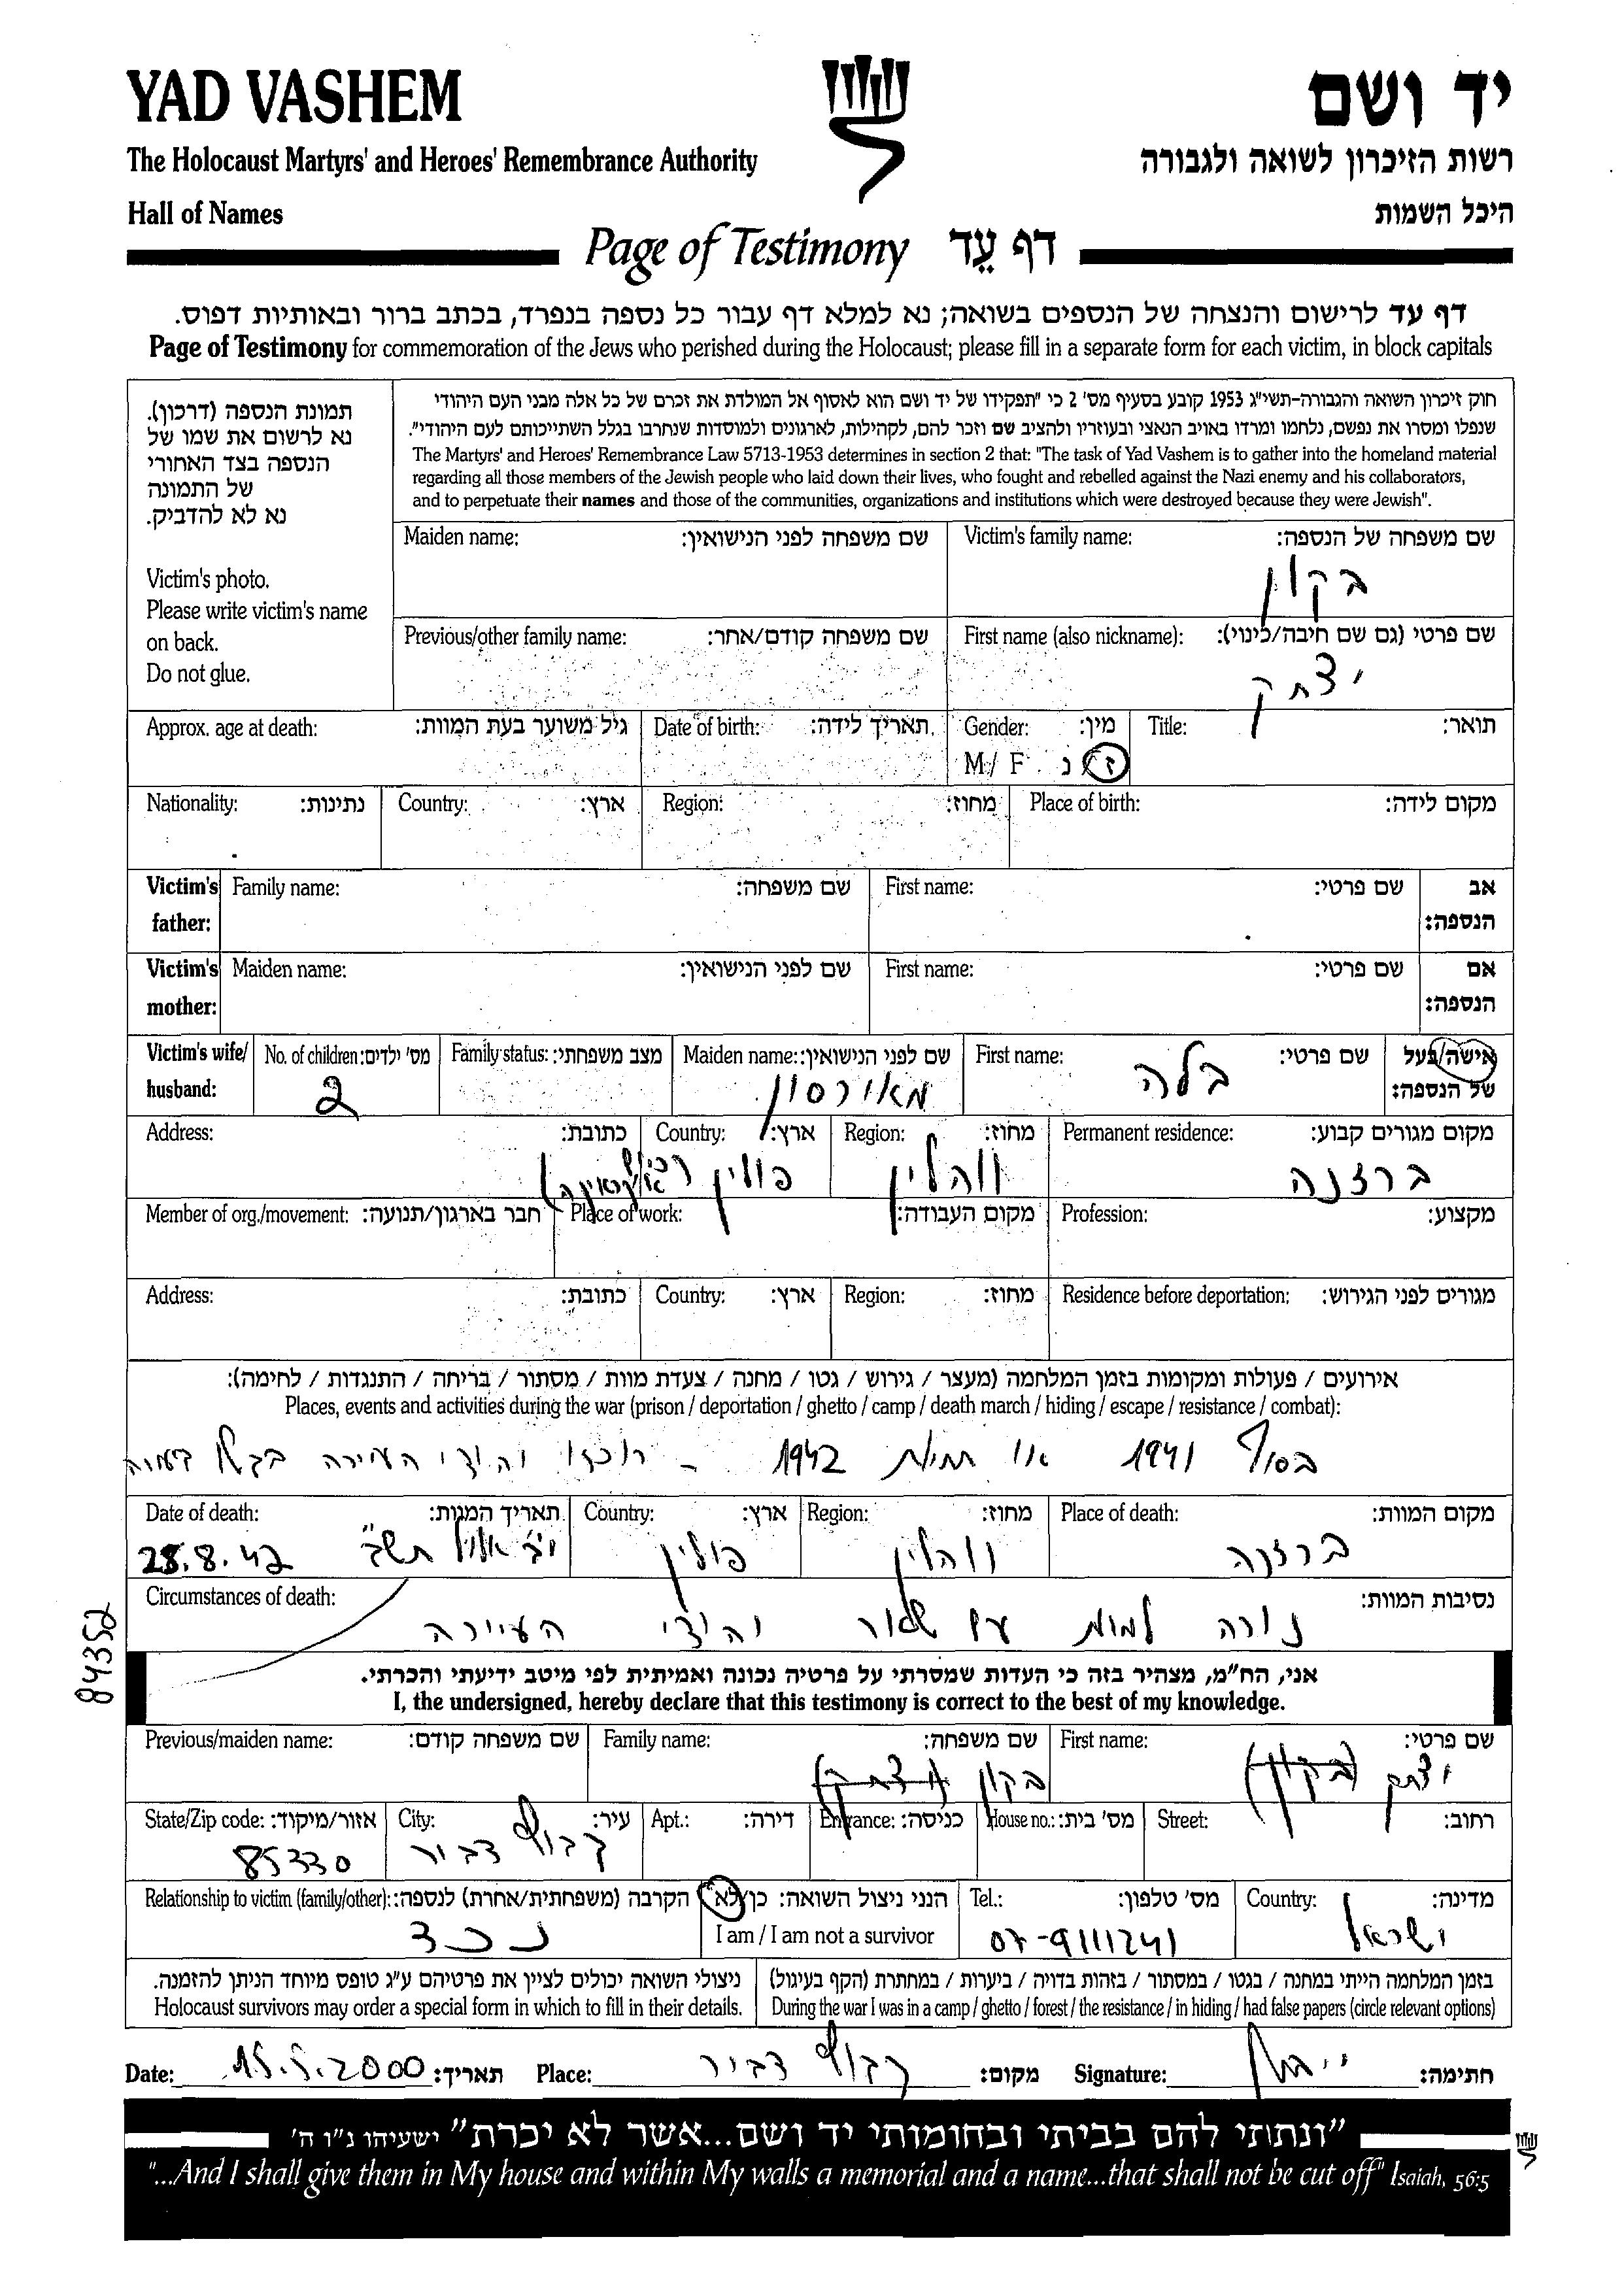 YAD VASHEM
יד ושם
The Holocaust Martyrs' and Heroes' Remembrance Authority
רשות הזיכרון לשואה ולגבורה
Hall of Names
היכל השמות
Page of Testimony דף עֵד
דף עד לרישום והנצחה של הנספים בשואה; נא למלא דף עבור כל נספה בנפרד, בכתב ברור ובאותיות דפוס.
Page of Testimony for commemoration of the Jews who perished during the Holocaust; please fill in a separate form for each victim, in block capitals
תמונת הנספה (דרכון).
נא לרשום את שמו של
הנספה בצד האחורי
של התמונה
נא לא להדביק.
Victim's photo.
Please write victim's name
on back.
Do not glue.
חוק זיכרון השואה והגבורה-תשי"ג 1953 קובע בסעיף מס' 2 כי "תפקידו של יד ושם הוא לאסוף אל המולדת את זכרם של כל אלה מבני העם היהודי
שנפלו ומסרו את נפשם, נלחמו ומרדו באויב הנאצי ובעוזריו ולהציב שם וזכר להם, לקהילות, לארגונים ולמוסדות שנחרבו בגלל השתייכותם לעם היהודי".
The Martyrs' and Heroes' Remembrance Law 5713-1953 determines in section 2 that: "The task of Yad Vashem is to gather into the homeland material
regarding all those members of the Jewish people who laid down their lives, who fought and rebelled against the Nazi enemy and his collaborators,
and to perpetuate their names and those of the communities, organizations and institutions which were destroyed because they were Jewish".
Maiden name: שם משפחה לפני הנישואין: Victim's family name: שם משפחה של הנספה:
בקון
Previous/other family name: שם משפחה קודם/אחר: First name (also nickname): שם פרטי (גם שם חיבה/כינוי):
יצחק
Approx. age at death: גיל משוער בעת המוות: Date of birth: תאריך לידה: Gender: מין: Title: תואר:
M / F ז / נ
Nationality: נתינות: Country: ארץ: Region: מחוז: Place of birth: מקום לידה:
Victim's father: Family name: שם משפחה: First name: שם פרטי: אב הנספה:
Victim's mother: Maiden name: שם לפני הנישואין: First name: שם פרטי: אם הנספה:
Victim's wife/ husband: No. of children: מס' ילדים: Family status: מצב משפחתי: Maiden name: שם לפני הנישואין: First name: שם פרטי: אישה/בעל של הנספה:
2 מאורסון בלה
Address: כתובת: Country: ארץ: Region: מחוז: Permanent residence: מקום מגורים קבוע:
ברזנה ווהלין פולין אוקראינה)
Member of org./movement: חבר בארגון/תנועה: Place of work: מקום העבודה: Profession: מקצוע:
Address: כתובת: Country: ארץ: Region: מחוז: Residence before deportation: מגורים לפני הגירוש:
אירועים / פעולות ומקומות בזמן המלחמה (מעצר / גירוש / גטו / מחנה / צעדת מוות / מסתור / בריחה / התנגדות / לחימה):
Places, events and activities during the war (prison / deportation / ghetto / camp / death march / hiding / escape / resistance / combat):
בסוף 1941 או תחילת 1942 - רוכזו יהודי העיירה
Date of death: תאריך המוות: Country: ארץ: Region: מחוז: Place of death: מקום המוות:
ברזנה ווהלין פולין אלול תש"ב 28.8.42
Circumstances of death: נסיבות המוות:
נורה למות עם שאר יהודי העיירה
84352
אני, הח"מ, מצהיר בזה כי העדות שמסרתי על פרטיה נכונה ואמיתית לפי מיטב ידיעתי והכרתי.
I, the undersigned, hereby declare that this testimony is correct to the best of my knowledge.
Previous/maiden name: שם משפחה קודם: Family name: שם משפחה: First name: שם פרטי:
יצחק (בקון) בקון (יצחק)
State/Zip code: אזור/מיקוד: City: עיר: Apt.: דירה: Entrance: כניסה: House no.: מס' בית: Street: רחוב:
85330 דביר
Relationship to victim (family/other): הקרבה (משפחתית/אחרת) לנספה: הנני ניצול השואה: כן/לא Tel.: מס' טלפון: Country: מדינה:
I am / I am not a survivor
נכד 07-9111241 ישראל
בזמן המלחמה הייתי במחנה / בגטו / במסתור / בזהות בדויה / ביערות / במחתרת (הקף בעיגול)
During the war I was in a camp / ghetto / forest / the resistance / in hiding / had false papers (circle relevant options)
ניצולי השואה יכולים לציין את פרטיהם ע"ג טופס מיוחד הניתן להזמנה.
Holocaust survivors may order a special form in which to fill in their details.
Date: 15.5.2000 תאריך: Place: דביר מקום: Signature: חתימה:
"ונתתי להם בביתי ובחומותי יד ושם...אשר לא יכרת" ישעיהו נ"ו ה'
"...And I shall give them in My house and within My walls a memorial and a name...that shall not be cut off" Isaiah, 56:5